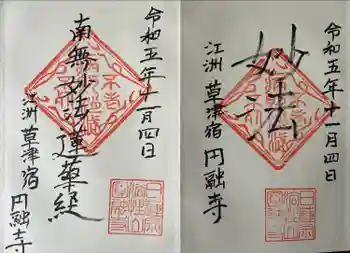 令和五年十一月四日
南無妙法蓮華経
江洲 草津宿 円融寺
令和五年十一月四日
妙法
江洲 草津宿 円融寺